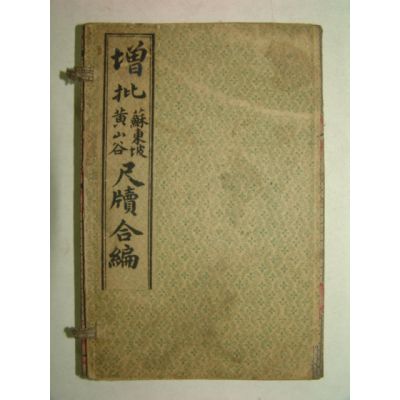 增批蘇東坡黄山谷尺牘合編